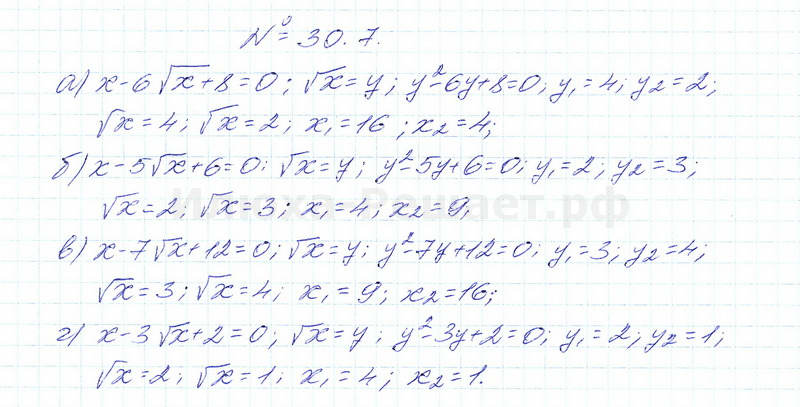 № 30.7.
а) x-6√x+8=0; √x=y; y²-6y+8=0; y₁=4; y₂=2;
√x=4; √x=2; x₁=16; x₂=4;
б) x-5√x+6=0; √x=y; y²-5y+6=0; y₁=2; y₂=3;
√x=2; √x=3; x₁=4; x₂=9;
в) x-7√x+12=0; √x=y; y²-7y+12=0; y₁=3; y₂=4;
√x=3; √x=4; x₁=9; x₂=16;
г) x-3√x+2=0; √x=y; y²-3y+2=0; y₁=2; y₂=1;
√x=2; √x=1; x₁=4; x₂=1.